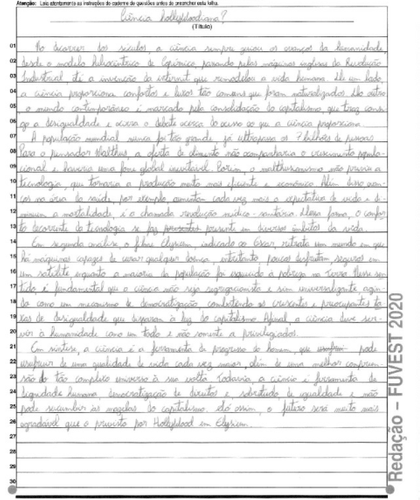 Atenção: Leia atentamente as instruções do caderno de questões antes de preencher esta folha.
Ciência hollywoodiana?
(Título)
01 No decorrer dos séculos, a ciência sempre guiou os avanços da humanidade
02 desde o modelo heliocêntrico de Copérnico passando pelas máquinas inglesas da Revolução
03 Industrial até a invenção da internet que remodelou a vida humana. De um lado,
04 a ciência proporciona confortos e luxos tão comuns que foram naturalizados. De outro
05 o mundo contemporâneo é marcado pela consolidação do capitalismo, que traz consi-
06 go a desigualdade e acirra o debate acerca do acesso ao que a ciência proporciona.
07 A população mundial nunca foi tão grande, já ultrapassa os 7 bilhões de pessoas.
08 Para o pensador Malthus, a oferta de alimento não acompanharia o crescimento popula-
09 cional e haveria uma fome global inevitável. Porém, o malthusianismo não previa a
10 tecnologia, que tornaria a produção muito mais eficiente e econômica. Além disso avan-
11 ços na área da saúde, por exemplo aumentam cada vez mais a expectativa de vida e di-
12 minuem a mortalidade, é a chamada revolução médico-sanitária. Dessa forma, o confor-
13 to decorrente da tecnologia se faz presente em diversos âmbitos da vida.
14 Em segunda análise, o filme Elysium, indicado ao Oscar, retrata um mundo em que
15 há máquinas capazes de curar qualquer doença, entretanto, poucos desfrutam seguros em
16 um satélite enquanto a maioria da população foi esquecida à pobreza na Terra. Nesse sen-
17 tido, é fundamental que a ciência não seja segregacionista e sim universalizante agin-
18 do como um mecanismo de democratização, combatendo as crescentes e preocupantes ta-
19 xas de desigualdade que surgiram à luz do capitalismo. Afinal, a ciência deve ser-
20 vir à humanidade como um todo e não somente a privilegiados.
21 Em síntese, a ciência é a ferramenta de progresso do homem, que pode
22 usufruir de uma qualidade de vida cada vez maior, além de uma melhor compreen-
23 são do tão complexo universo à sua volta. Todavia, a ciência é ferramenta de
24 dignidade humana, democratização de direitos e, sobretudo, de igualdade e não
25 pode sucumbir às mazelas do capitalismo. Só assim, o futuro será muito mais
26 agradável que o previsto por Hollywood em Elysium.
27
28
29
30
Redação – FUVEST 2020